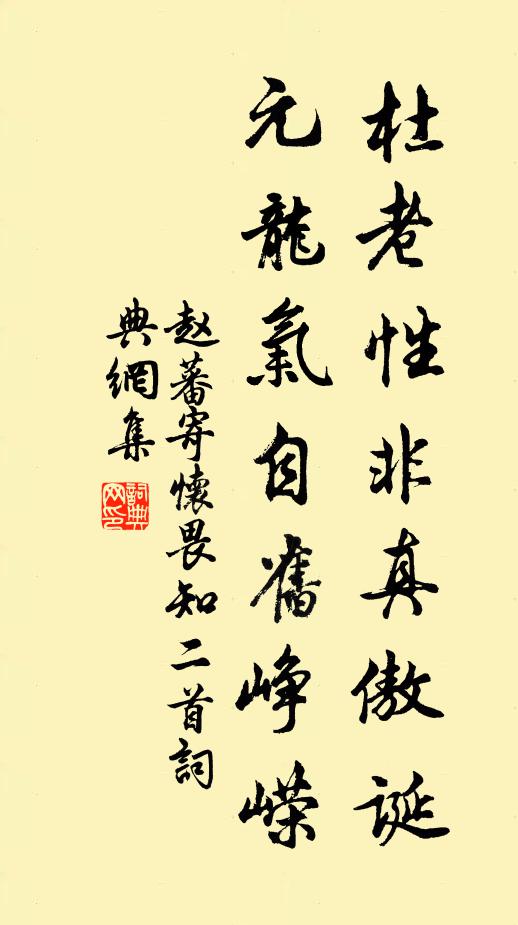 杜老性非真傲诞
元龍氣自舊峥嵘
赵蕃寄懷畏知二首詞
典網集
詞典
网印